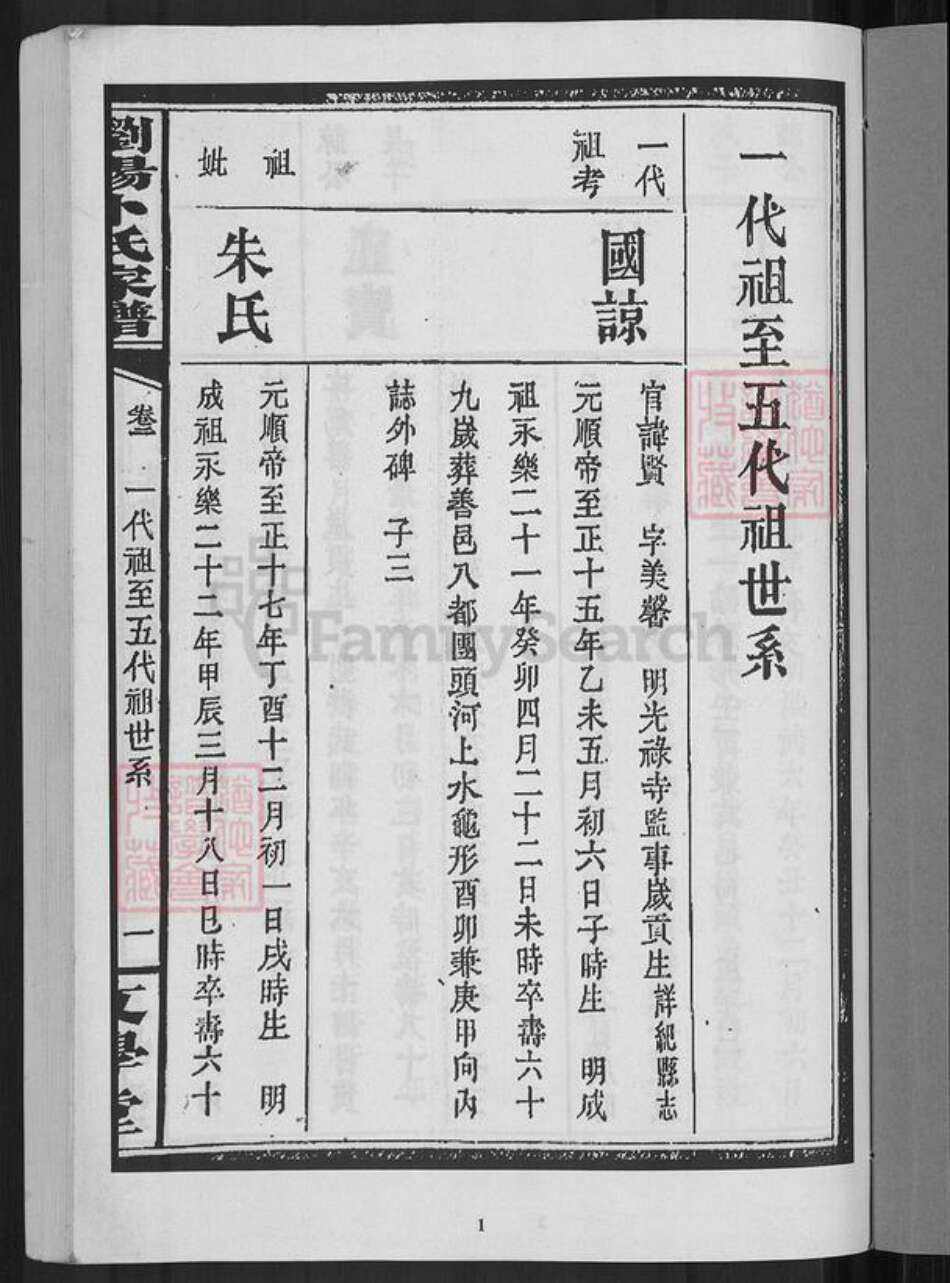 一代祖至五代祖世系
一代
祖考
國諒
官諱賢 字美馨 明光祿寺監事歲貢生詳紀縣志
元順帝至正十五年乙未五月初六日子時生 明成
祖永樂二十一年癸卯四月二十二日未時卒壽六十
九歲葬善邑八都團頭河上水龜形酉卯兼庚甲向內
誌外碑 子三
祖
妣
朱氏
元順帝至正十七年丁酉十二月初一日戌時生 明
成祖永樂二十二年甲辰三月十八日巳時卒壽六十
氏家譜
卷二 一代祖至五代祖世系
一
FamilySearch
1